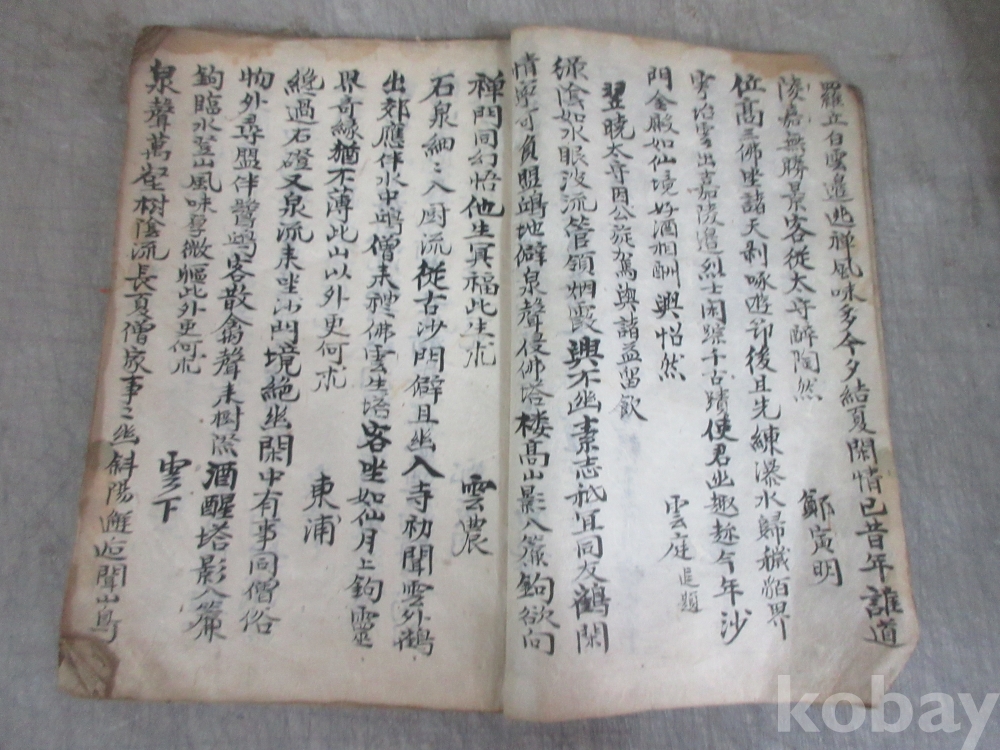 羅立白雲邊逃禪風味多今夕結夏閑情已昔年誰道
陵嘉無勝景客從太守醉陶然
鄭寅明
位高三佛坐諸天剝啄遊節後且先練瀑水歸穢貊界
雲出嘉陵邊烈士閑踪千古蹟使君幽趣趂今年沙
門金殿如仙境好酒相酬興怡然
雲崖追題
翌曉太守因公旋駕與諸益留飮
綠陰如水眼波流管領烟霞興不幽素志秖宜同友鶴閑
情寧可負盟鷗地僻泉聲侵佛塔樓高山影入簾鉤欲向
禪門同幻悟他生冥福此生求
雲農
石泉細〻入廚流從古沙門僻且幽入寺初聞雲外鶴
出郊應伴水中鷗僧來禮佛雲生塔客坐如仙月上鉤靈
界奇緣猶不薄此山以外更何求
東浦
纔過石磴又泉流來坐沙門境絶幽閑中有事同僧俗
物外尋盟伴鷺鷗客散禽聲來樹際酒醒塔影入簾
鉤臨水登山風味享微軀此外更何求
雲下
泉聲萬壑樹陰流長夏僧家事〻幽斜陽邂逅聞山鳥